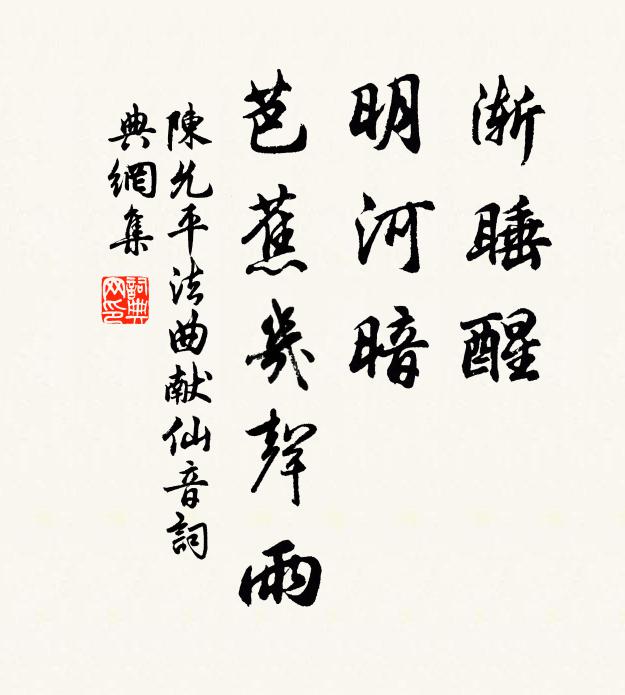 渐睡醒
明河暗
芭蕉幾聲雨
陳允平法曲献仙音詞
典網集
詞典网印